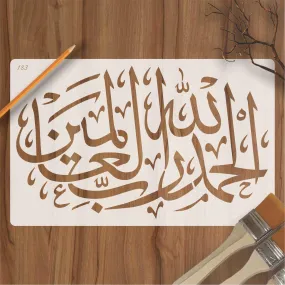 153
الحمد لله رب العالمين